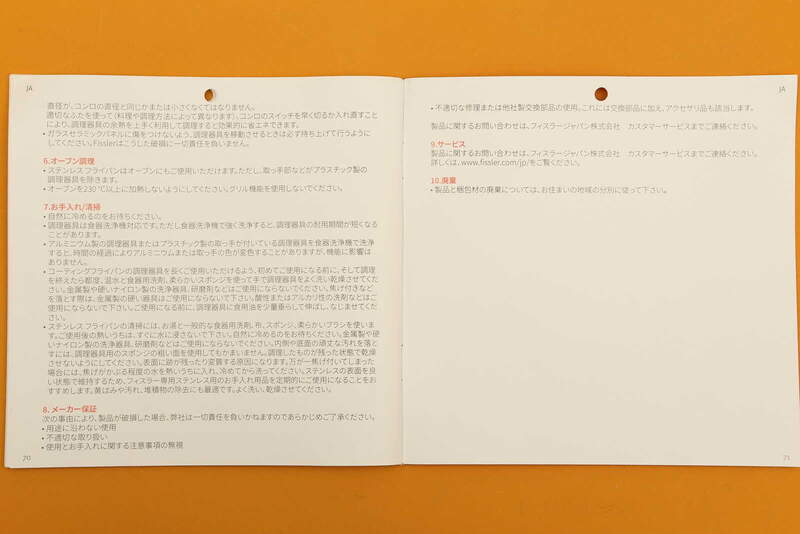 JA
直径が、コンロの直径と同じかまたは小さくなくてはなりません。
適切なふたを使って（料理や調理方法によって異なります）、コンロのスイッチを早く切るか入れ直すこと
により、調理器具の余熱を上手く利用して調理すると効果的に省エネできます。
• ガラスセラミックパネルに傷をつけないよう、調理器具を移動させるときは必ず持ち上げて行うように
してください。Fisslerはこうした破損に一切責任を負いません。
6.オーブン調理
• ステンレスフライパンはオーブンにもご使用いただけます。ただし、取っ手部などがプラスチック製の
調理器具を除きます。
• オーブンを230 °C以上に加熱しないようにしてください。グリル機能を使用しないでください。
7.お手入れ/清掃
• 自然に冷めるのをお待ちください。
• 調理器具は食器洗浄機対応です。ただし食器洗浄機で強く洗浄すると、調理器具の耐用期間が短くなる
ことがあります。
• アルミニウム製の調理器具またはプラスチック製の取っ手が付いている調理器具を食器洗浄機で洗浄
すると、時間の経過によりアルミニウムまたは取っ手の色が変色することがありますが、機能に影響は
ありません。
• コーティングフライパンの調理器具を長くご使用いただけるよう、初めてご使用になる前に、そして調理
を終えたら都度、温水と食器用洗剤、柔らかいスポンジを使って手で調理器具をよく洗い乾燥させてくだ
さい。金属製や硬いナイロン製の洗浄器具、研磨剤などはご使用にならないでください。焦げ付きなど
を落とす際は、金属製の硬い器具はご使用にならないで下さい。酸性またはアルカリ性の洗剤などはご
使用にならないで下さい。ご使用になる前に、調理器具に食用油を少量垂らして伸ばし、なじませてく
ださい。
• ステンレスフライパンの清掃には、お湯と一般的な食器用洗剤、布、スポンジ、柔らかいブラシを使いま
す。ご使用後の熱いうちは、すぐに水に浸さないで下さい。自然に冷めるのをお待ちください。金属製や硬
いナイロン製の洗浄器具、研磨剤などは、ご使用にならないでください。内側や底面の頑丈な汚れを落と
すには、調理器具用のスポンジの粗い面を使用してもかまいません。調理したものが残った状態で乾燥
させないようにしてください。表面に跡が残ったり変質する原因になります。万が一焦げ付いてしまった
場合には、焦げがかぶる程度の水を熱いうちに入れ、冷めてから洗ってください。ステンレスの表面を良
い状態で維持するため、フィスラー専用ステンレス用のお手入れ用品を定期的にご使用になることをお
すすめします。黄ばみや汚れ、堆積物の除去にも最適です。よく洗い、乾燥させてください。
8. メーカー保証
次の事由により、製品が破損した場合、弊社は一切責任を負いかねますのであらかじめご了承ください。
• 用途に沿わない使用
• 不適切な取り扱い
• 使用とお手入れに関する注意事項の無視
70
JA
• 不適切な修理または他社製交換部品の使用。これには交換部品に加え、アクセサリ品も該当します。
製品に関するお問い合わせは、フィスラージャパン株式会社　カスタマーサービスまでご連絡ください。
9.サービス
製品に関するお問い合わせは、フィスラージャパン株式会社　カスタマーサービスまでご連絡ください。
詳しくは、www.fissler.com/jp/をご覧ください。
10.廃棄
• 製品と梱包材の廃棄については、お住まいの地域の分別に従って下さい。
71